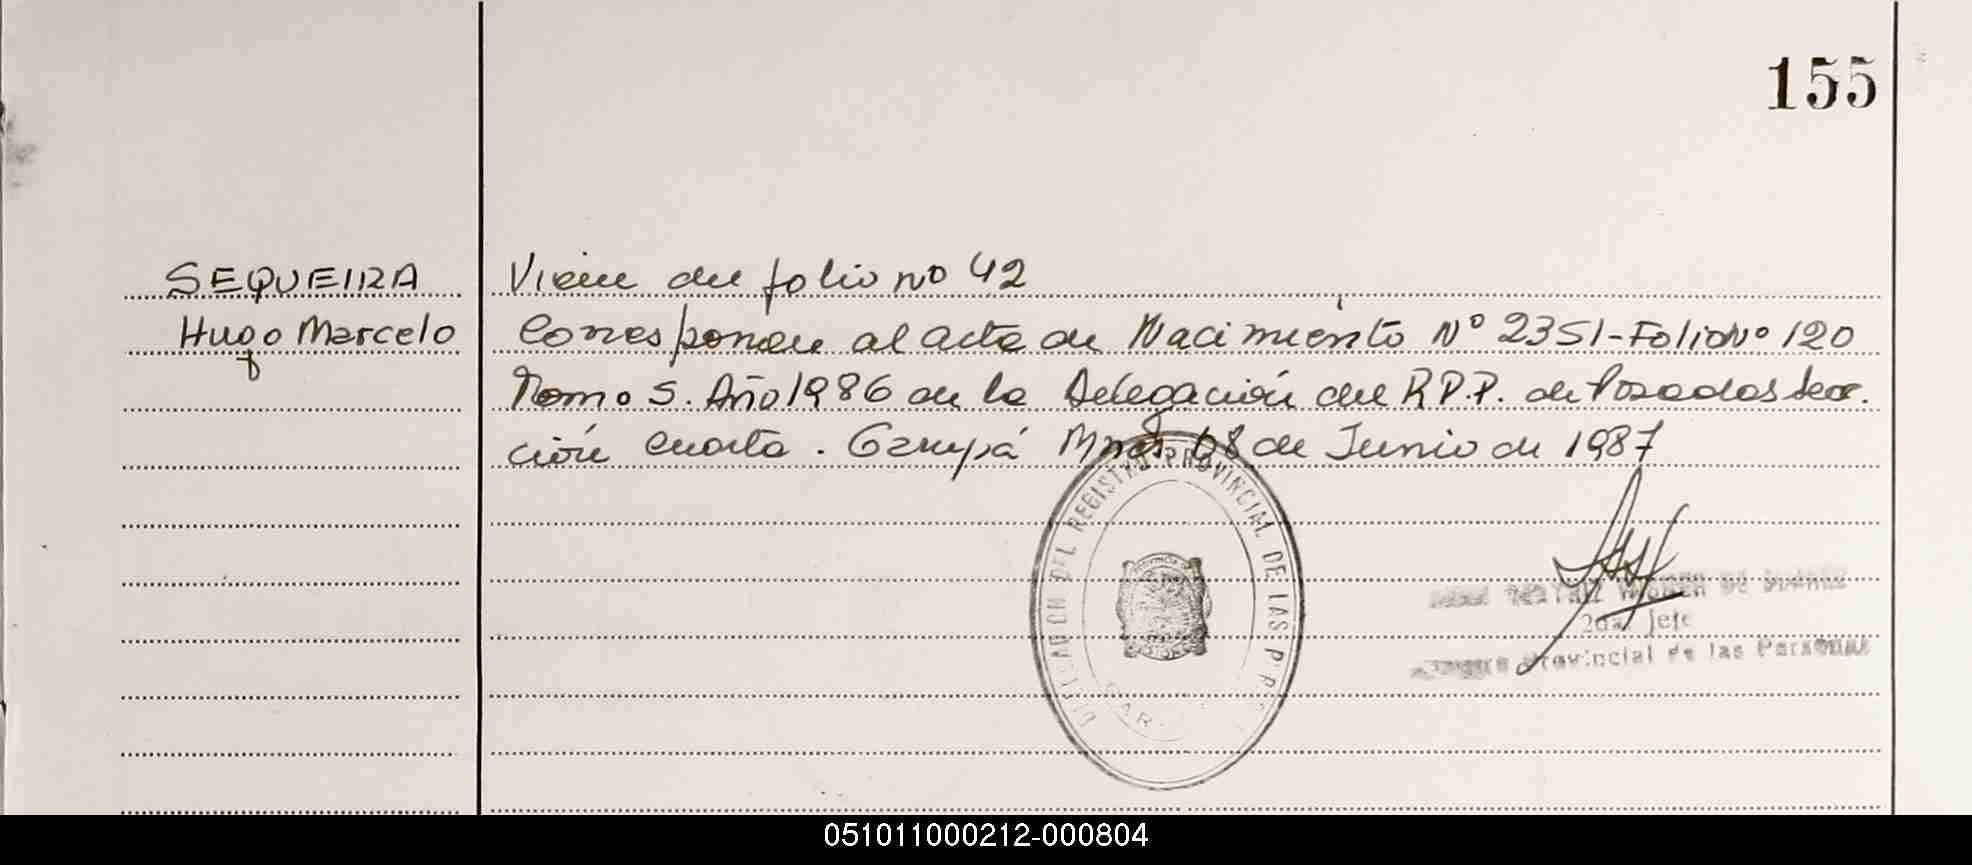 155
SEQUEIRA
Hugo Marcelo
Viene del folio no 42
Corresponde al acta de Nacimiento Nº 2351-Folio Nº 120
Tomo 5. Año 1986 de la Delegación del R.P.P. de Posadas Sec.
ción cuarta. Garupá Mnes, 08 de Junio de 1987
DELEGACION DEL REGISTRO PROVINCIAL DE LAS P
2da. Jefe
Provincial de las Personas
051011000212-000804